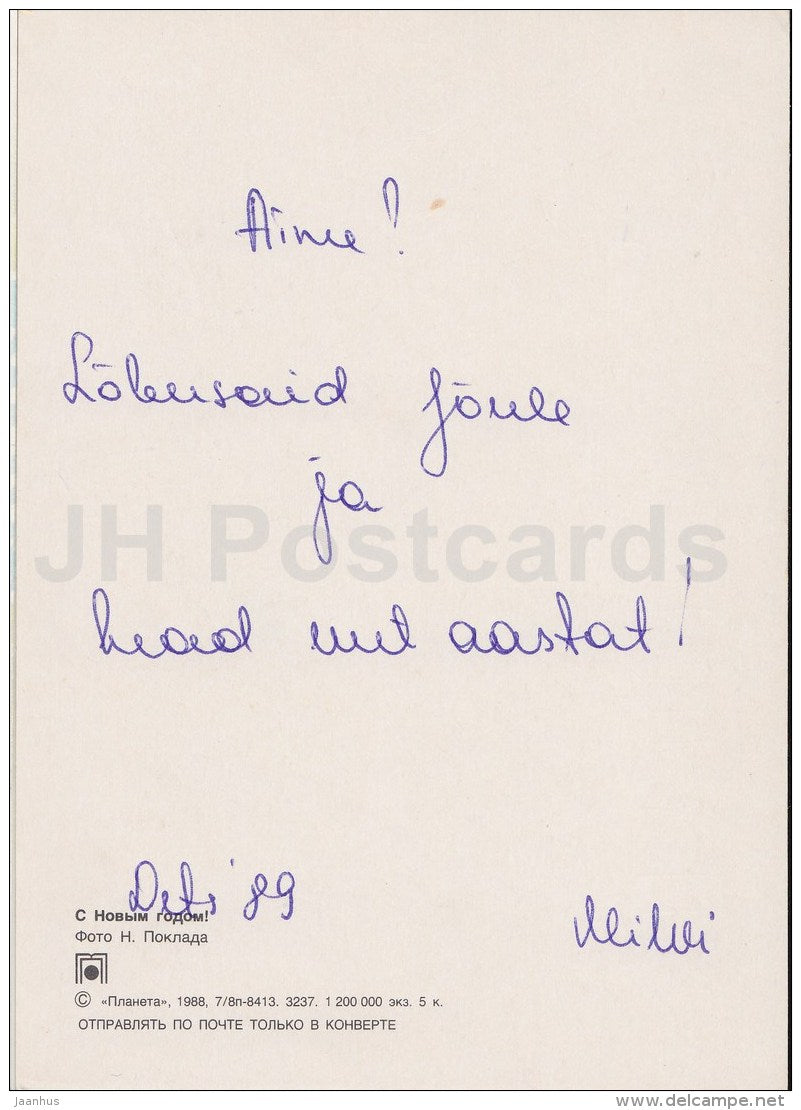 Aime!
Lõbusaid jõule
ja
head uut aastat!
JH Postcards
Dets '89
Milvi
С Новым годом!
Фото Н. Поклада
© «Планета», 1988, 7/8п-8413. 3237. 1 200 000 экз. 5 к.
ОТПРАВЛЯТЬ ПО ПОЧТЕ ТОЛЬКО В КОНВЕРТЕ
Jaanhus
www.delcampe.net